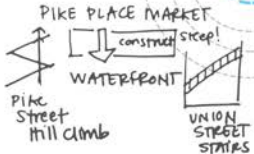 PIKE PLACE MARKET
construct
steep!
WATERFRONT
Pike
Street
Hill Climb
UNION
STREET
STAIRS